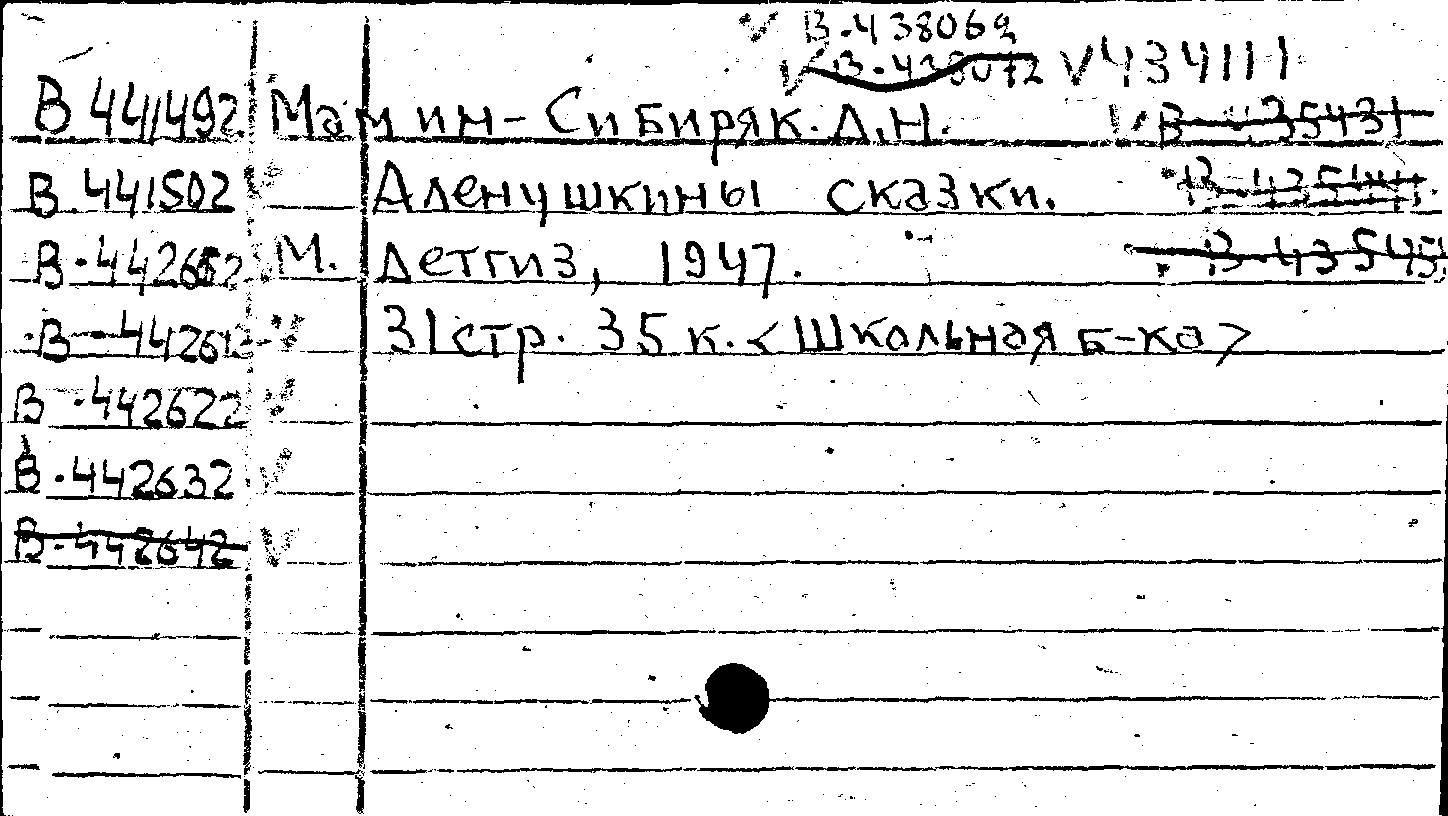 В.438069
В.438072 V434111
В 441492 Мамин-Сибиряк. Д.Н. В 435431
В.441502 Аленушкины сказки.
М. Детгиз, 1947. В-43545
31 стр. 35 к. <Школьная б-ка>
В.442622
В.442632
В.442642